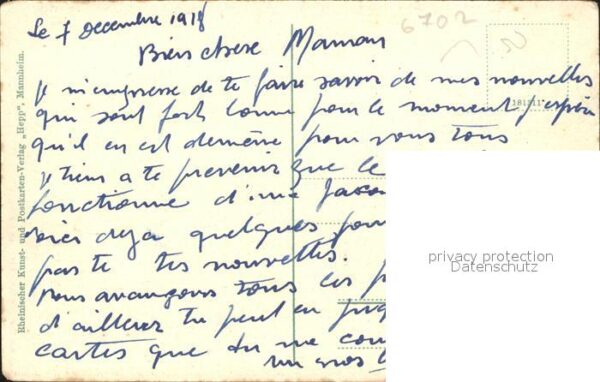 Le 7 decembre 1918
6702
Bien chere Maman
je m'empresse de te faire savoir de mes nouvelles
qui sont fort bonne pour le moment j'espère
181111
qu'il en est de même pour vous tous
je tiens a te prevenir que le
fonctionne d'une
deja quelques
pas te tes nouvelles.
nous avançons tous les
d'ailleur tu peut en
cartes que tu me
un gros
Rheinischer Kunst- und Postkarten-Verlag „Hepp", Mannheim.
privacy protection
Datenschutz